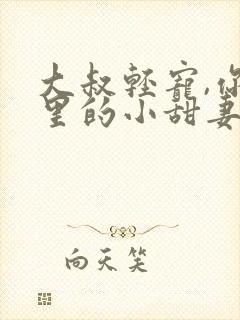 大叔輕寵,你
里的小甜妻
向天笑